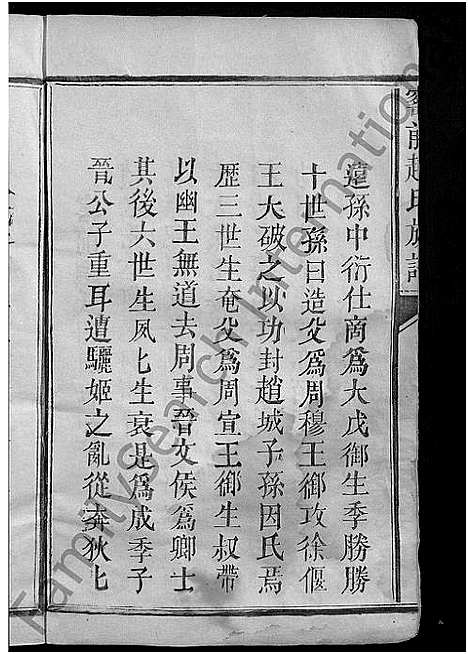 遠孫中衍仕商為大戊御生季勝勝
十世孫曰造父為周穆王御攻徐偃
王大破之以功封趙城子孫因氏焉
歷三世生奄父為周宣王御生叔帶
以幽王無道去周事晉文侯為卿士
其後六世生夙匕生衰是為成季子
晉公子重耳遭驪姬之亂從奔狄匕
趙氏族譜
FamilySearch International